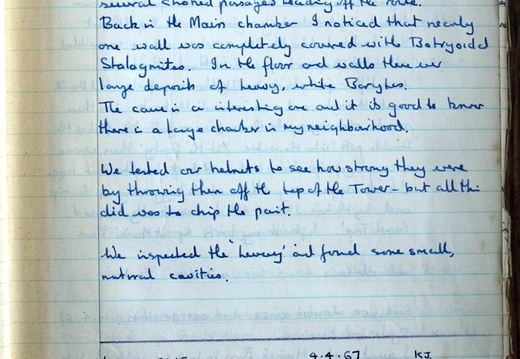 several choked passages leading off the route.
Back in the Main chamber I noticed that nearly
one wall was completely covered with Botryoidal
Stalagmites. In the floor and walls there wer
large deposits of heavy, white Barytes.
The cave is a interesting one and it is good to know
there is a large chamber in my neighbourhood.
We tested our helmets to see how strong they were
by throwing them off the top of the Tower - but all this
did was to chip the paint.
We inspected the 'Levvy' and found some small,
natural cavities.
4.4.67 KJ